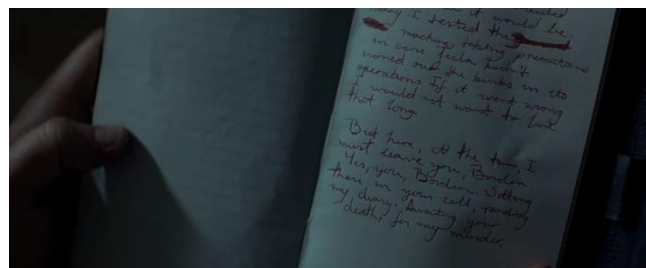 it would be
I tested the
machine, taking precautions
in case Tesla hadn't
worked out the kinks in its
operations. If it went wrong
I would not want to live
that long.
But here, at the turn, I
must leave you, Borden.
Yes, you, Borden. Sitting
there in your cell, reading
my diary, awaiting your
death, for my murder.